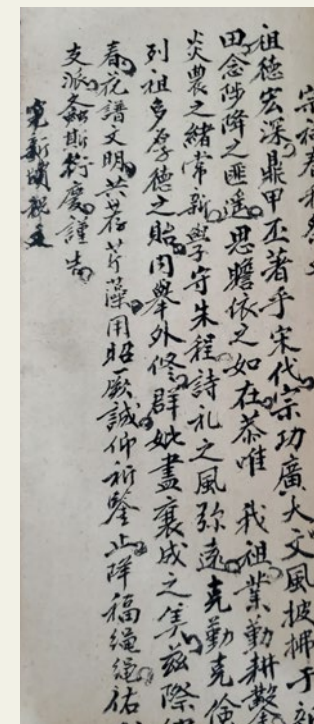 宗祠春秋祭文
祖德宏深鼎甲丕著乎宋代宗功廣大文風披拂于
田念陟降之匪遥思瞻依之如在恭唯 我祖業勤耕鑿
炎農之緒常新學守朱程詩礼之風弥遠克勤克儉
列祖多厚德之貽内舉外修群妣盡襄成之美兹際
春花譜文明共荐芹藻用昭厥誠仰祈鑒止降福绳绳佑
支派螽斯衍慶謹告
完新墳祝文